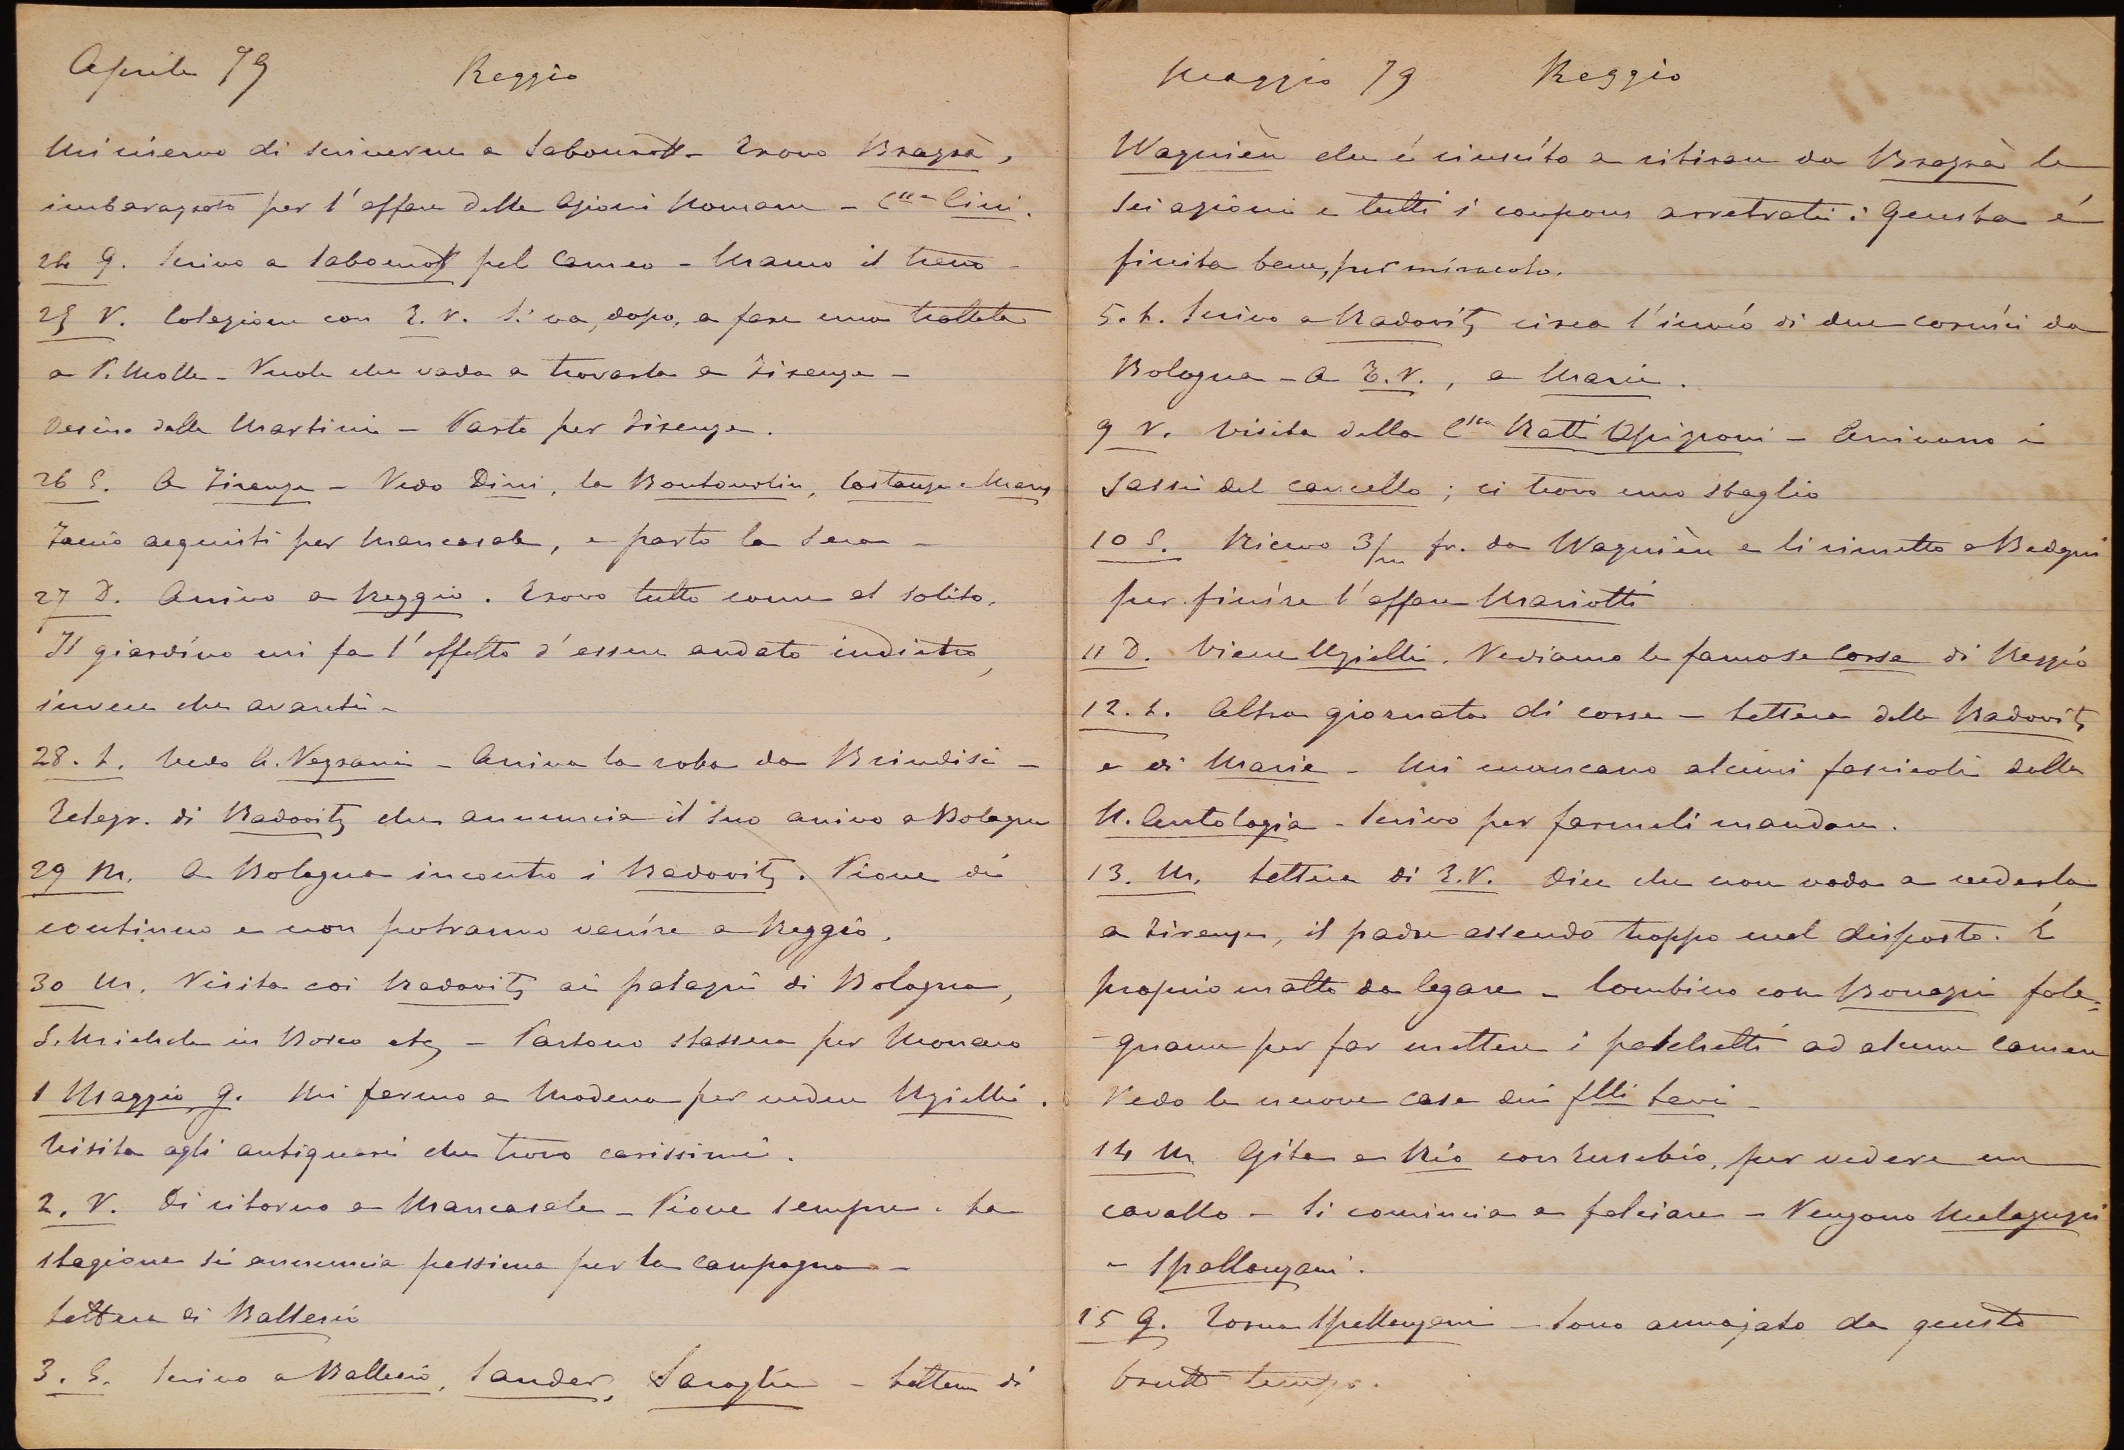 Aprile 79 Reggio
Mi riservo di scriverne a Sabouroff - Trovo Bragrà,
imbarazzato per l'affare delle Azioni Romane - Cssa Cini.
24 G. Scrivo a Sabouroff pel Cameo - Manco il treno
25 V. Colazione con E. V. Si va, dopo, a fare una trottata
a P. Molle - Vuole che vada a trovarla a Firenze -
Desino dalla Martini - Parto per Firenze.
26 S. A Firenze - Vedo Dini, la Boutourlin, Costanza e Mary
Faccio acquisti per Mancasale, e parto la sera -
27 D. Arrivo a Reggio. Trovo tutto come al solito.
Il giardino mi fa l'effetto d'essere andato indietro,
invece che avanti -
28. L. Vedo A. Negrani - Arriva la roba da Brindisi -
Telegr. di Radovitz che annuncia il suo arrivo a Bologna
29 M. A Bologna incontro i Radovitz. Piove di
continuo e non potranno venire a Reggio.
30 M. Visita coi Radovitz ai palazzi di Bologna,
S. Michele in Bosco etc - Partono stassera per Monaco
1 Maggio G. Mi fermo a Modena per vedere Uzielli.
Visita agli antiquari che trovo carissimi.
2. V. Di ritorno a Mancasale - Piove sempre. La
stagione si annuncia pessima per la campagna -
Lettera di Balleriò
3. S. Scrivo a Balleriò, Sander, - Lettera di
Maggio 79 Reggio
Wagnièn che é riuscito a ritirare da Bragrà le
sei azioni e tutti i coupons arretrati: Questa é
finita bene, per miracolo.
5. L. Scrivo a Radovitz circa l'invió di due cornici da
Bologna - A E. V., a Marie.
9 V. Visita della Cssa Ratti Opizzoni - Arrivano i
sassi del cancello; ci trovo uno sbaglio
10 S. Ricevo 3/m fr. da Wagnièn e li rimetto a Bedogni
per finire l'affare Mariotti
11 D. Viene Uzielli. Vediamo le famose Corse di Reggio
12. L. Altra giornata di corse - Lettera della Radovitz
e di Marie - Mi mancano alcuni fascicoli della
N. Antologia - Scrivo per farmeli mandare.
13. M. Lettera di E. V. Dice che non vada a vederla
a Firenze, il padre essendo troppo mal disposto. É
proprio matto da legare - Combino con Bonazzi fale=
-gname per far mettere i palchetti ad alcune camere
Vedo le nuove case dei flli Levi -
14 M Gita a Rio con Eusebio, per vedere un
cavallo - Si comincia a falciare - Vengono Malaguzzi
e Spallanzani.
15 G. Torna Spallanzani - Sono annojato da questo
brutto tempo.